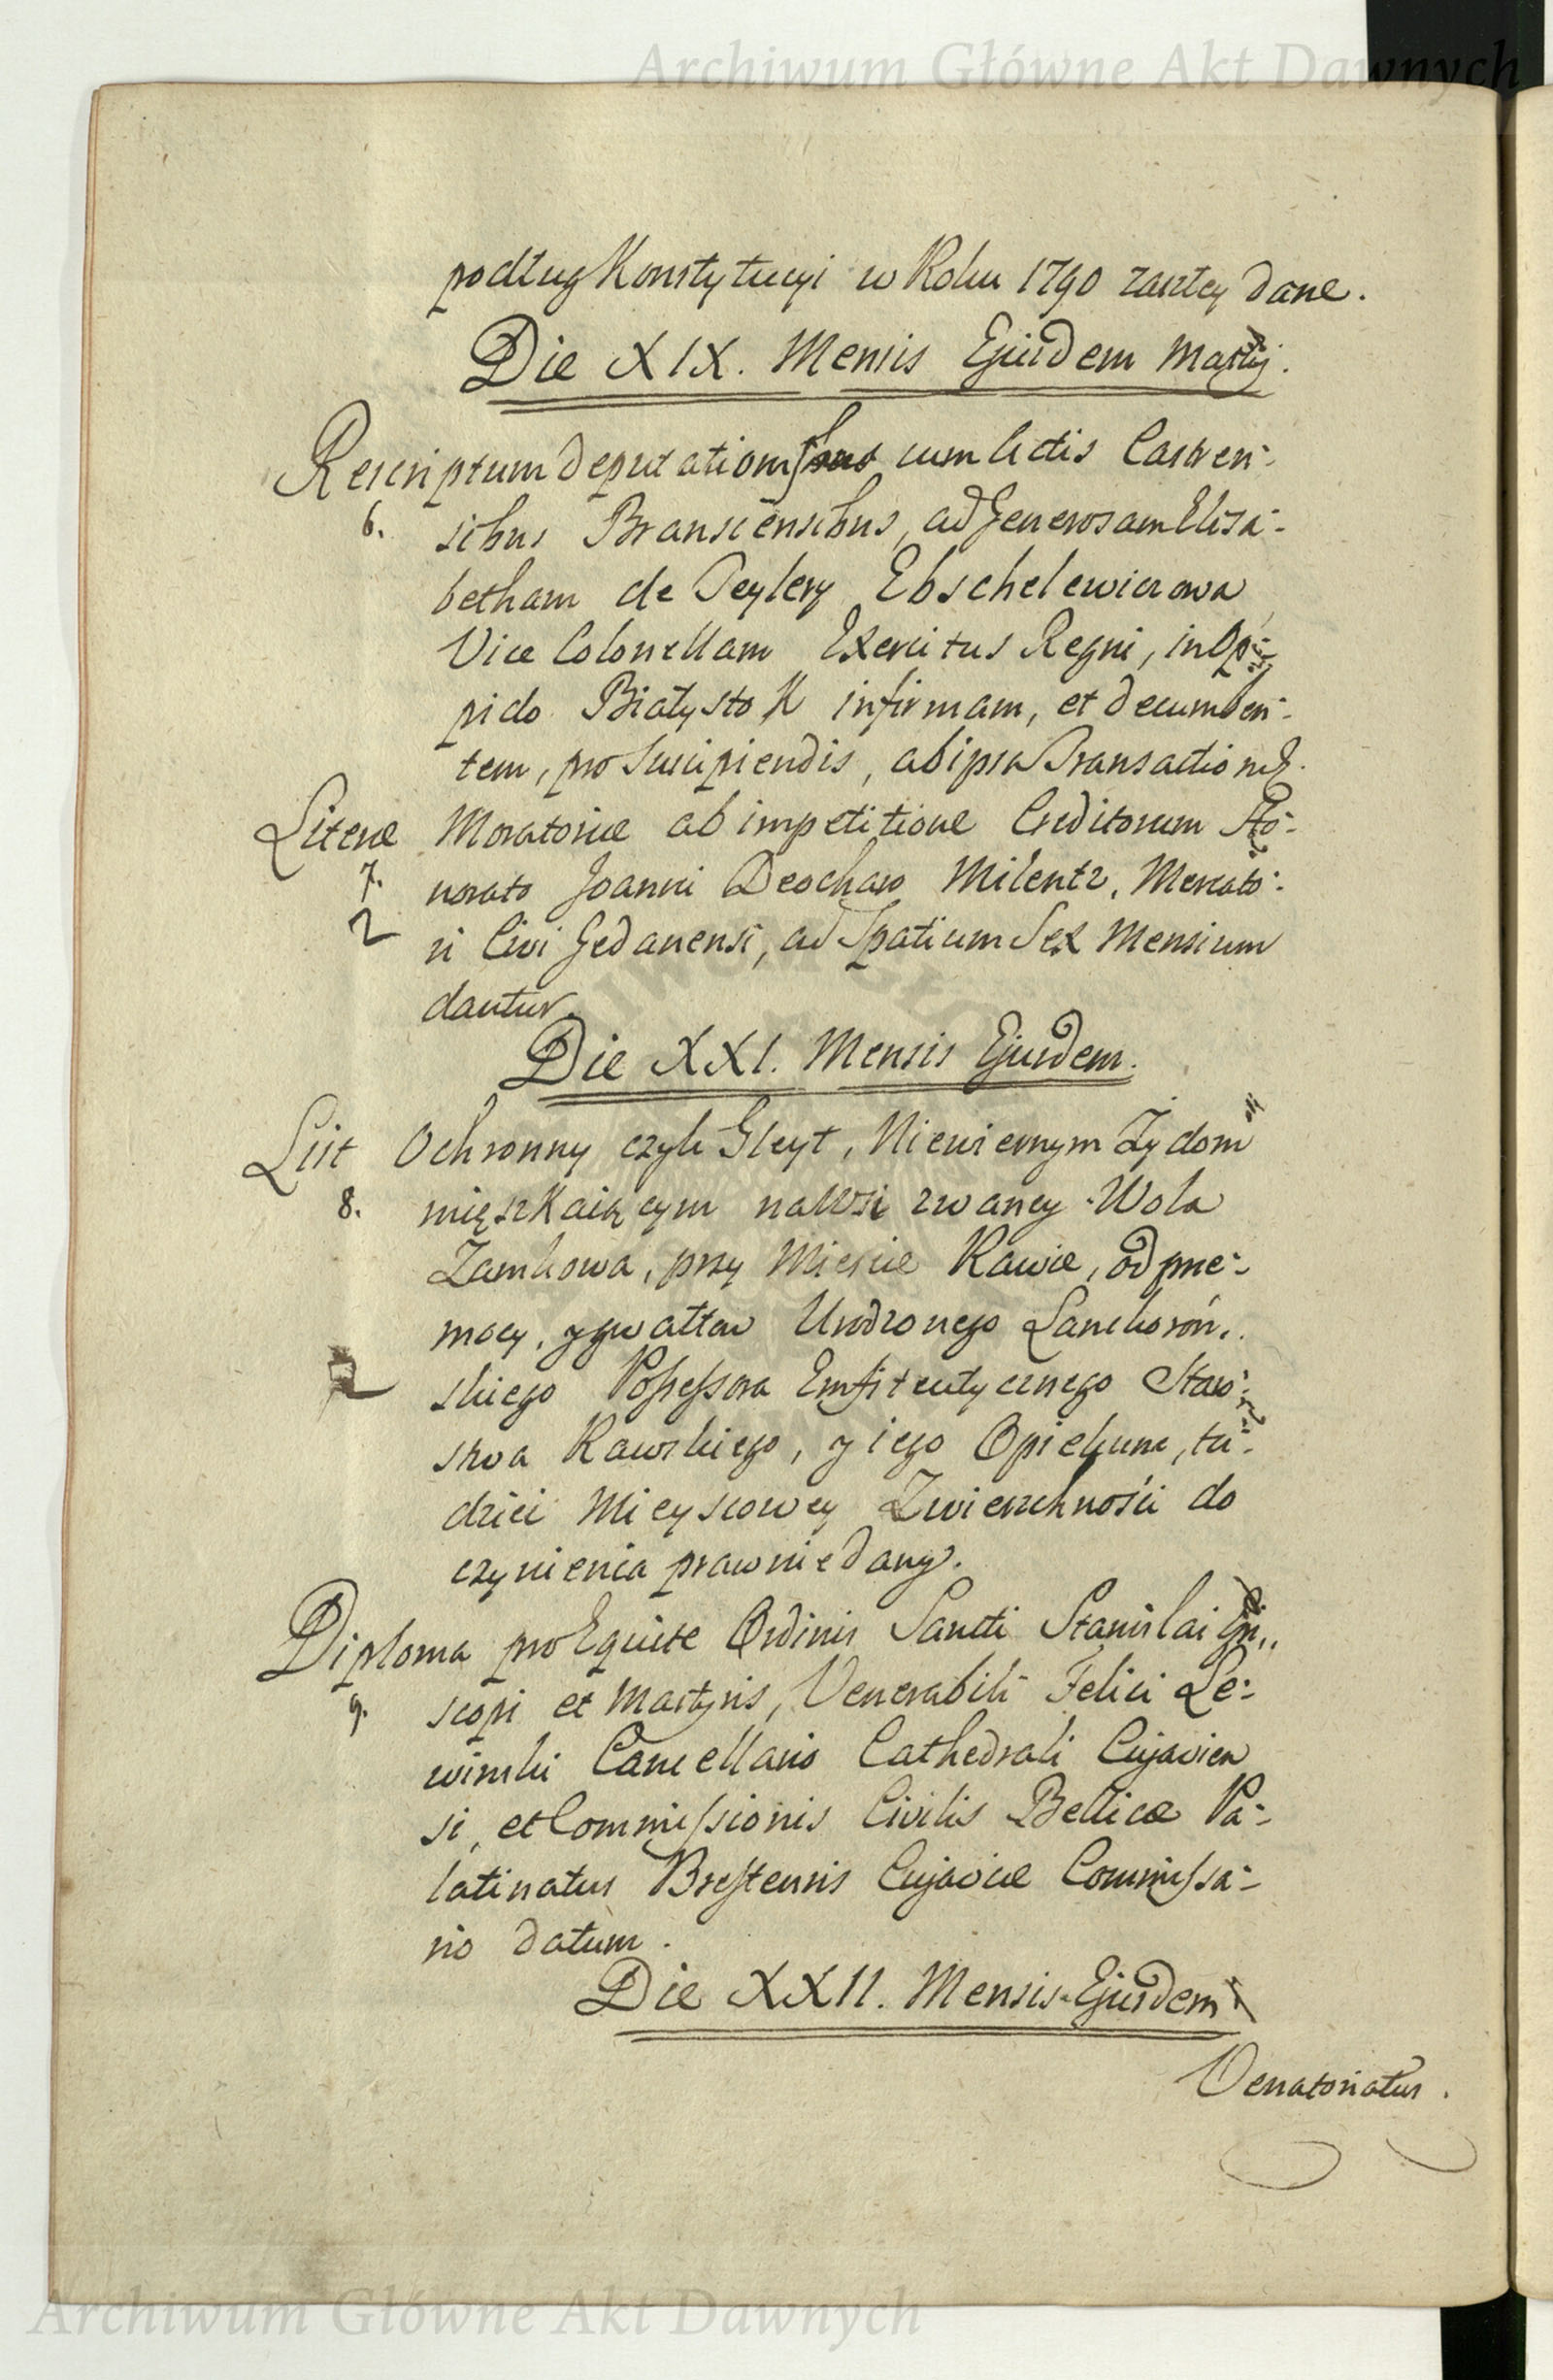 Archiwum Główne Akt Dawnych
podług Konstytucyi w Roku 1790 zaszłey dane.
Die XIX. Mensis Ejusdem Martij.
Rescriptum Deputationis cum Actis Castren-
6. sibus Branscensibus, ad Generosam Elisa-
betham de Teylery Ebschelewiczowa
Vice Colonellam Exercitus Regni, in Op-
pido Białystok infirmam, et decumben-
tem, pro suscipiendis, ab ipsa Transactione.
Literæ Moratoriæ ab impetitione Creditorum Ho-
7. norato Joanni Deochar Milentz, Mercato-
2 ri Civi Gedanensi, ad Spatium Sex Mensium
dantur.
Die XXI. Mensis Ejusdem.
List Ochronny czyli Gleyt, Niewiernym Zydom
8. mięszkaiącym na Wsi zwaney Wola
Zamkowa, przy Mieście Rawie, od prze-
mocy, y gwałtow Urodzonego Lanckoroń-
2 skiego Possessora Emfiteutycznego Staro-
stwa Rawskiego, y iego Opiekuna, tu-
dzież Mieyscowey Zwierzchności do
czynienia prawnie dany.
Diploma pro Equite Ordinis Sancti Stanislai Epi-
9. scopi et Martyris, Venerabili Felici Le-
winski Cancellario Cathedrali Cujavien
si, et Commissionis Civilis Bellicæ Pa-
latinatus Brestensis Cujaviæ Commissa-
rio datum.
Die XXII. Mensis Ejusdem
Venatoriatus.
Archiwum Główne Akt Dawnych